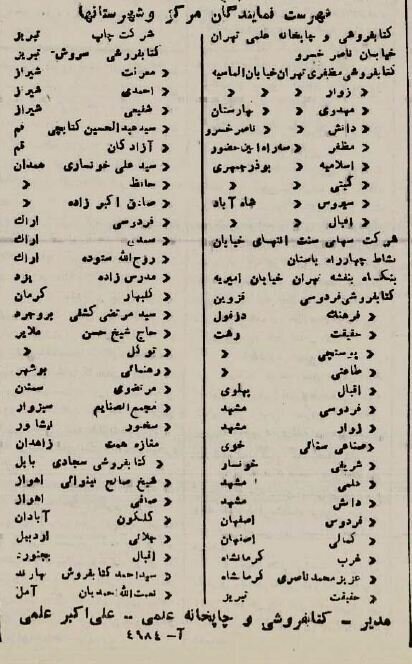 فهرست نمایندگان مرکز وشهرستانها
کتابفروشی و چاپخانه علمی تهران
خیابان ناصر خسرو
کتابفروشی مظفری تهران خیابان الماسیه
« زوار « « «
« مهدوی « « بهارستان
« دانش « « ناصر خسرو
« مظفر « سه راه امین حضور
« اسلامیه « بوذرجمهری
« گیتی « «
« سیروس « شاه آباد
« اقبال « «
شرکت سهامی سنت انتهای خیابان
نشاط چهارراه باستان
بنگاه بنفشه تهران خیابان امیریه
کتابفروشی فردوسی قزوین
« فرهنگ دزفول
« حقیقت رشت
« پوستچی «
« طاعتی «
« اقبال پهلوی
« فردوسی مشهد
« زوار مشهد
« صناعی سنائی خوی
« شریفی خونسار
« علمی مشهد
« دانش مشهد
« فردوس اصفهان
« کمالی اصفهان
« غرب کرمانشاه
« عزیز محمد ناصری کرمانشاه
« حقیقت تبریز
شرکت چاپ تبریز
کتابفروشی سروش - تبریز
« معرفت شیراز
« احمدی شیراز
« شفیعی شیراز
« سید عبدالحسین کتابچی قم
« آزادگان قم
« سید علی خونساری همدان
« حافظ «
« صادق اکبر زاده «
« فردوسی اراک
« سعدی اراک
« روح الله ستوده اراک
« مدرس زاده یزد
« گلبهار کرمان
« سید مرتضی کشفی بروجرد
« حاج شیخ حسن ملایر
« توکل «
« رهنمائی بوشهر
« مرتضوی سمنان
« مجمع الصنایع سبزوار
« سخنور نیشابور
« مغازه همت زاهدان
« کتابفروشی سجادی بابل
« شیخ صالح اهواز
« صافی اهواز
« گلگون آبادان
« جلالی اردبیل
« اقبال بجنورد
« سید احمد کتابفروش نهاوند
« نعمت الله احمدیان آمل
مدیر – کتابفروشی و چاپخانه علمی – علی اکبر علمی
آ- ۴۹۸۴